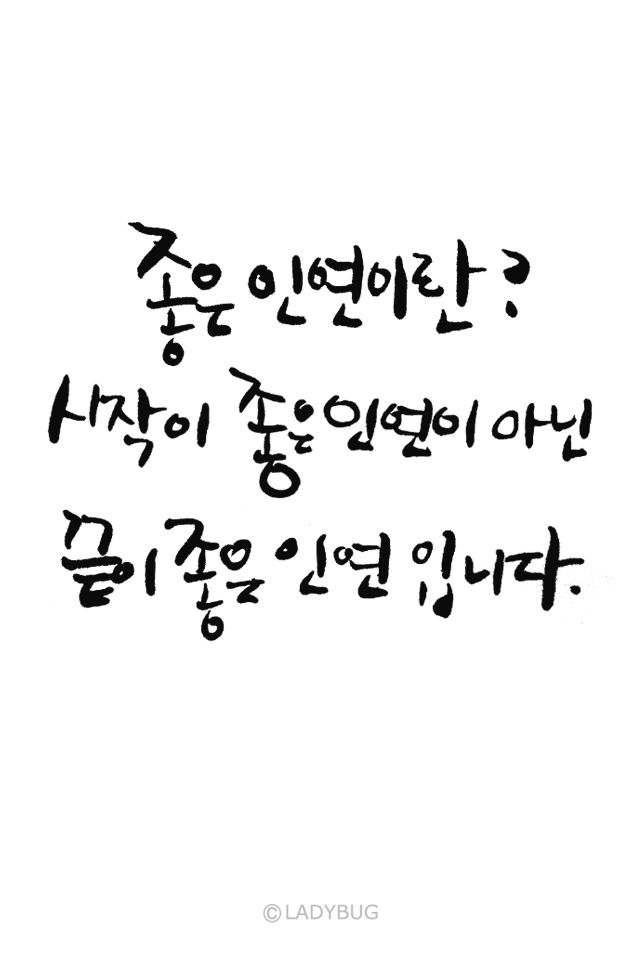 좋은 인연이란?
시작이 좋은 인연이 아닌
끝이 좋은 인연 입니다.
©LADYBUG